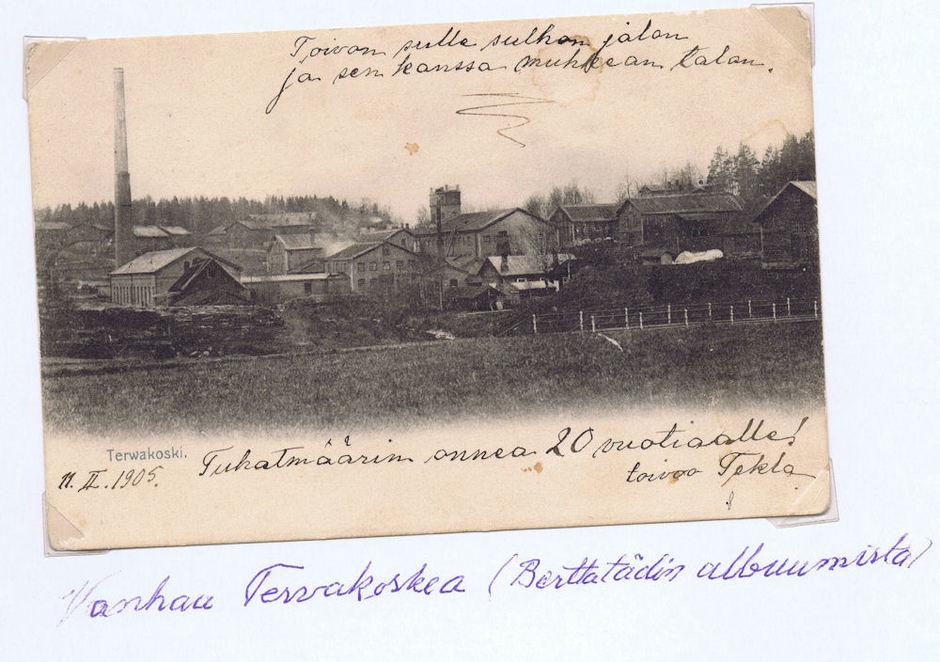 Toivon sulle sulhon jalon
ja sen kanssa muhkean talon.
Terwakoski.
11. II. 1905.
Tuhatmäärin onnea 20 vuotiaalle!
toivoo Tekla
Vanhaa Tervakoskea (Berttatädin albuumista)